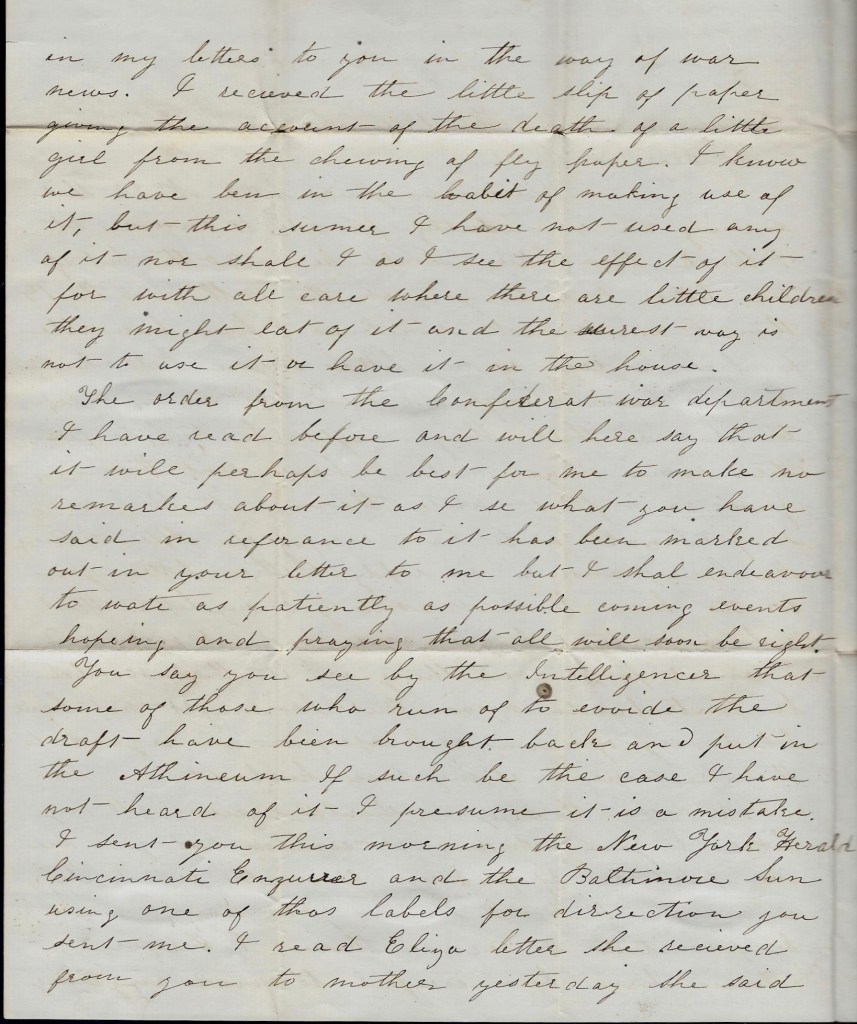 in my letters to you in the way of war
news. I recieved the little slip of paper
giving the account of the death of a little
girl from the chewing of fly paper. I know
we have ben in the habit of making use of
it, but this sumer I have not used any
of it nor shall I as I see the effect of it
for with all care where there are little children
they might eat of it and the surest way is
not to use it or have it in the house.
The order from the Confiderat war department
I have read before and will here say that
it will perhaps be best for me to make no
remarkes about it as I se what you have
said in referance to it has been marked
out in your letter to me but I shal endeavour
to wate as patiently as possible coming events
hopeing and praying that all will soon be right.
You say you see by the Intelligencer that
some of those who run of to evoide the
draft have been brought back and put in
the Athineum If such be the case I have
not heard of it I presume it is a mistake.
I sent you this morning the New York Herald
Cincinnati Enqurrer and the Baltimore Sun
using one of thos labels for dirrection you
sent me. I read Eliza letter she recieved
from you to mother yesterday she said